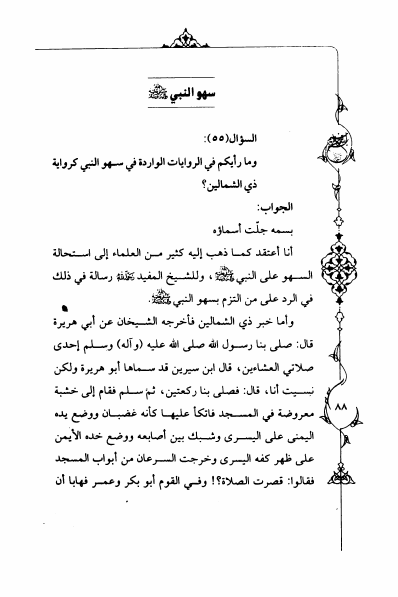 سهو النبي ﷺ
السؤال(٥٥):
وما رأيكم في الروايات الواردة في سهو النبي كرواية
ذي الشمالين؟
الجواب:
بسمه جلّت أسماؤه
أنا أعتقد كما ذهب إليه كثير من العلماء إلى استحالة
السهو على النبي ﷺ، وللشيخ المفيد رسالة في ذلك
في الرد على من التزم بسهو النبي ﷺ.
وأما خبر ذي الشمالين فأخرجه الشيخان عن أبي هريرة
قال: صلى بنا رسول الله صلى الله عليه (وآله) وسلم إحدى
صلاتي العشاءين، قال ابن سيرين قد سماها أبو هريرة ولكن
نسيت أنا، قال: فصلى بنا ركعتين، ثم سلم فقام إلى خشبة
معروضة في المسجد فاتكأ عليها كأنه غضبان ووضع يده
اليمنى على اليسرى وشبك بين أصابعه ووضع خده الأيمن
على ظهر كفه اليسرى وخرجت السرعان من أبواب المسجد
فقالوا: قصرت الصلاة؟! وفي القوم أبو بكر وعمر فهابا أن
٨٨